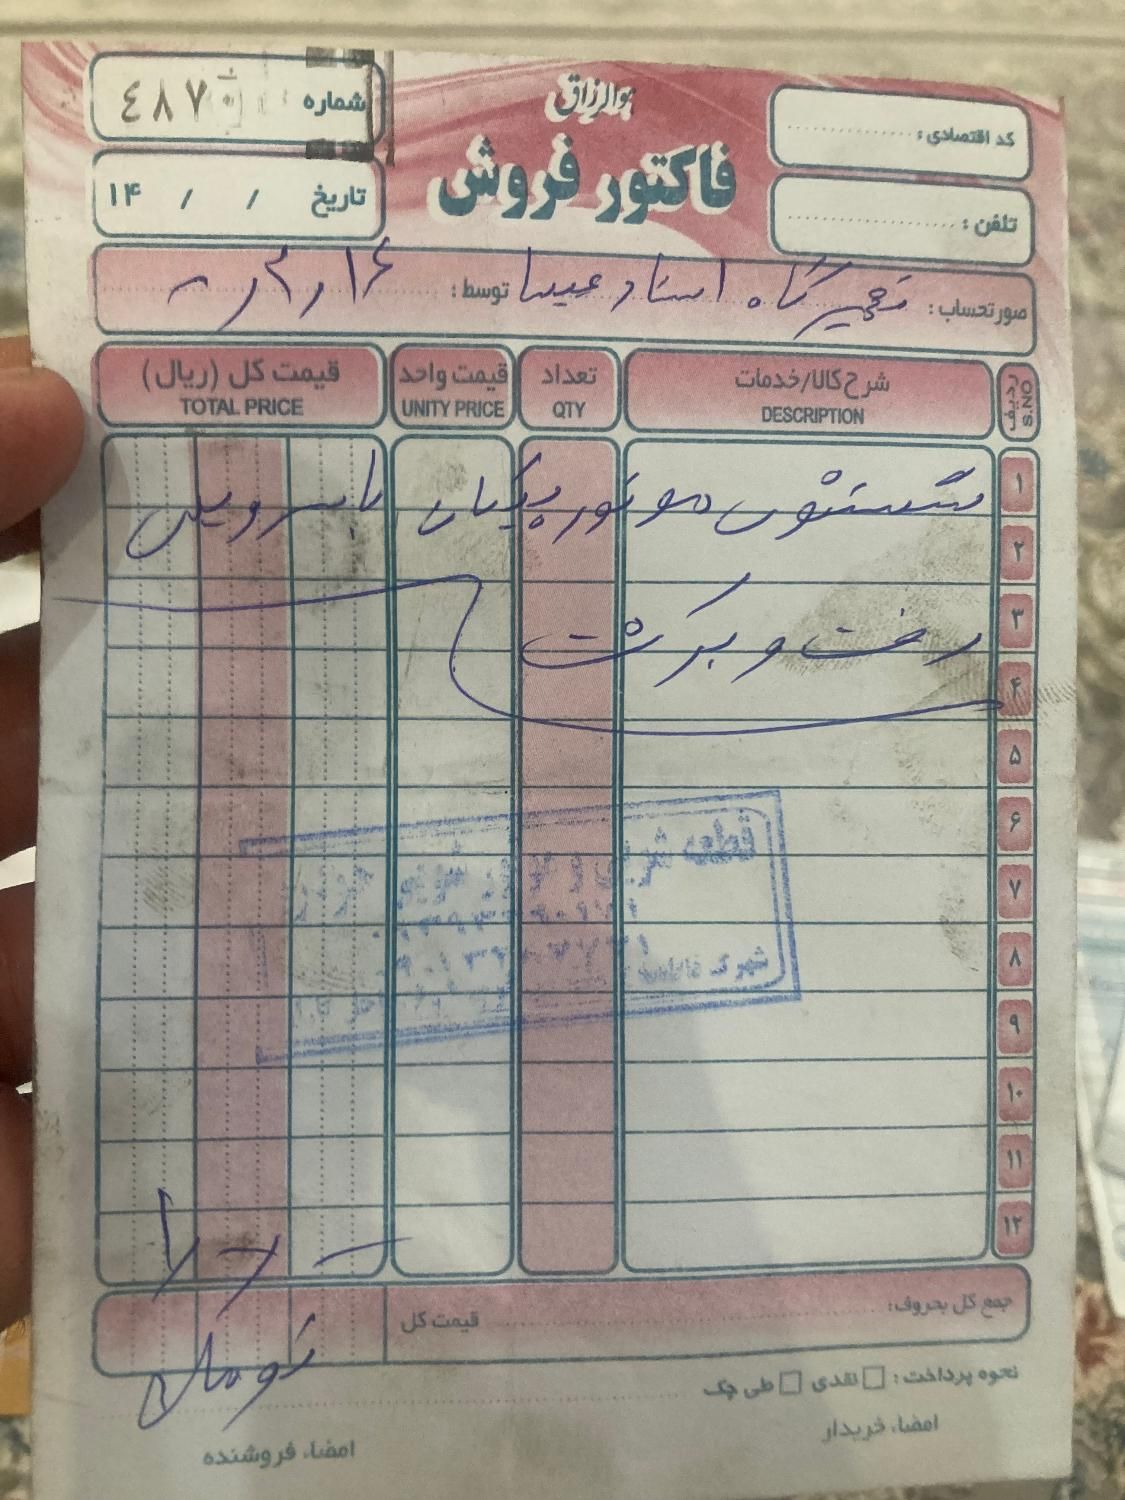 هوالرزاق
فاکتور فروش
شماره ٤٨٧٠
تاریخ / / ۱۴
کد اقتصادی:
تلفن:
صورتحساب: تعمیرگاه استاد عیسا توسط:
ردیف S.NO
شرح کالا/خدمات DESCRIPTION
تعداد QTY
قیمت واحد UNITY PRICE
قیمت کل (ریال) TOTAL PRICE
۱
شستشوی موتور پیکان با سرویس
۲
۳
رفت و برگشت
۴
۵
۶
۷
۸
۹
۱۰
۱۱
۱۲
قطعه شویی و موتور شویی
شهرک
جمع کل بحروف: قیمت کل
تومان
نحوه پرداخت: نقدی طی چک
امضاء خریدار
امضاء فروشنده